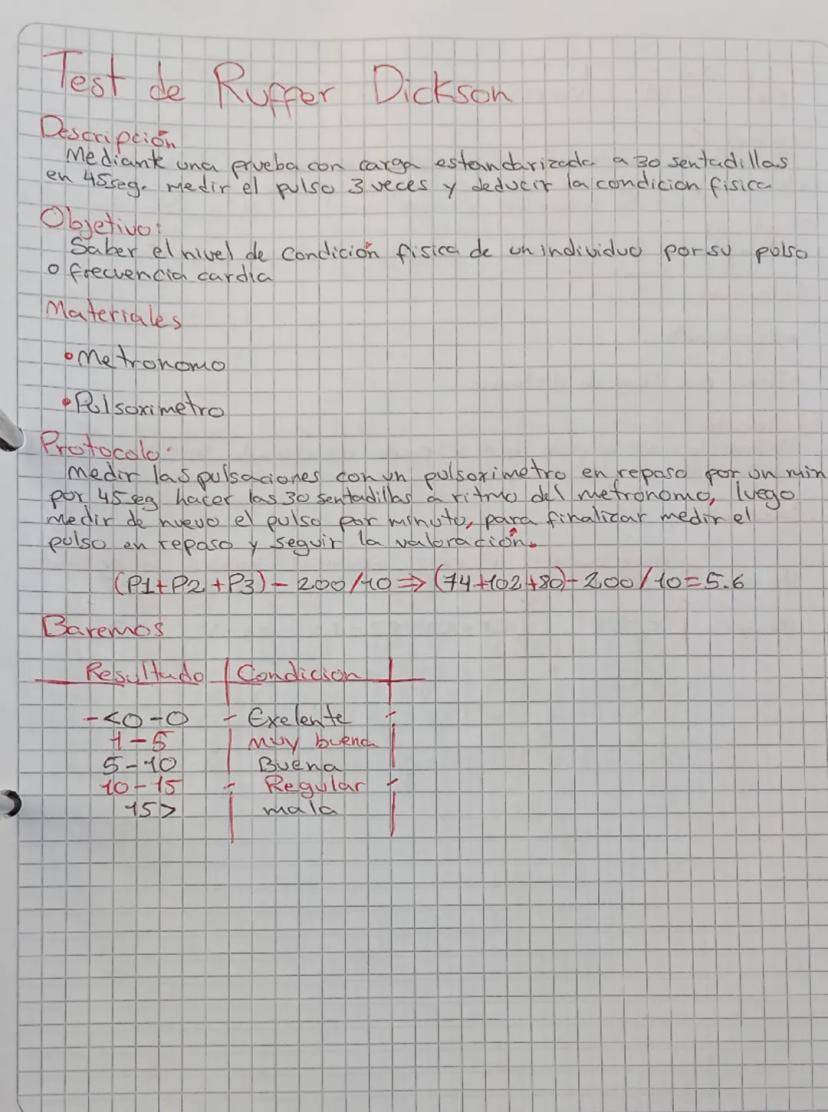 Test de Ruffer Dickson
Descripción
Mediante una prueba con carga estandarizada a 30 sentadillas
en 45seg. medir el pulso 3 veces y deducir la condicion fisica
Objetivo:
Saber el nivel de condición fisica de un individuo por su pulso
o frecuencia cardia
Materiales
•Metronomo
•Pulsoximetro
Protocolo:
Medir las pulsaciones con un pulsoximetro en reposo por un min
por 45seg hacer las 30 sentadillas a ritmo del metronomo, luego
medir de nuevo el pulso por minuto, para finalizar medir el
pulso en reposo y seguir la valoración.
(P1+P2+P3)-200/10⇒(74+102+80)-200/10=5.6
Baremos
Resultado | Condicion |
-<0-0 - Exelente -
1-5 | Muy buena |
5-10 | Buena |
10-15 - Regular -
15> | mala |